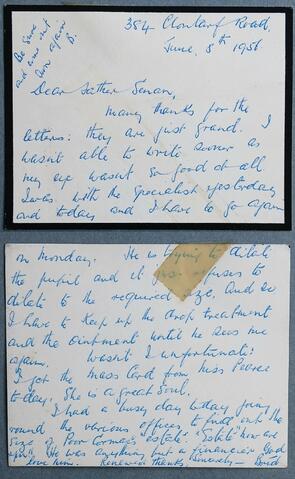 Be sure
and come out
soon again
D.
384 Clontarf Road,
June. 8th 1956.
Dear Father Senan,
Many thanks for the
letters: they are just grand. I
wasn't able to write sooner as
my eye wasn't so good at all.
I was with the Specialist yesterday
and today and I have to go again
on Monday. He is trying to dilate
the pupil and it just refuses to
dilate to the required size. And so
I have to keep up the drop treatment
and the ointment until he sees me
again. Wasn't I unfortunate:
I got the Mass Card from Miss Pearse
today. She is a great soul.
I had a busy day today going
round the various offices to find out the
size of Poor Cormac's "estate". "Estate" how are
you". He was anything but a financier God
love him. Renewed thanks, Sincerely —